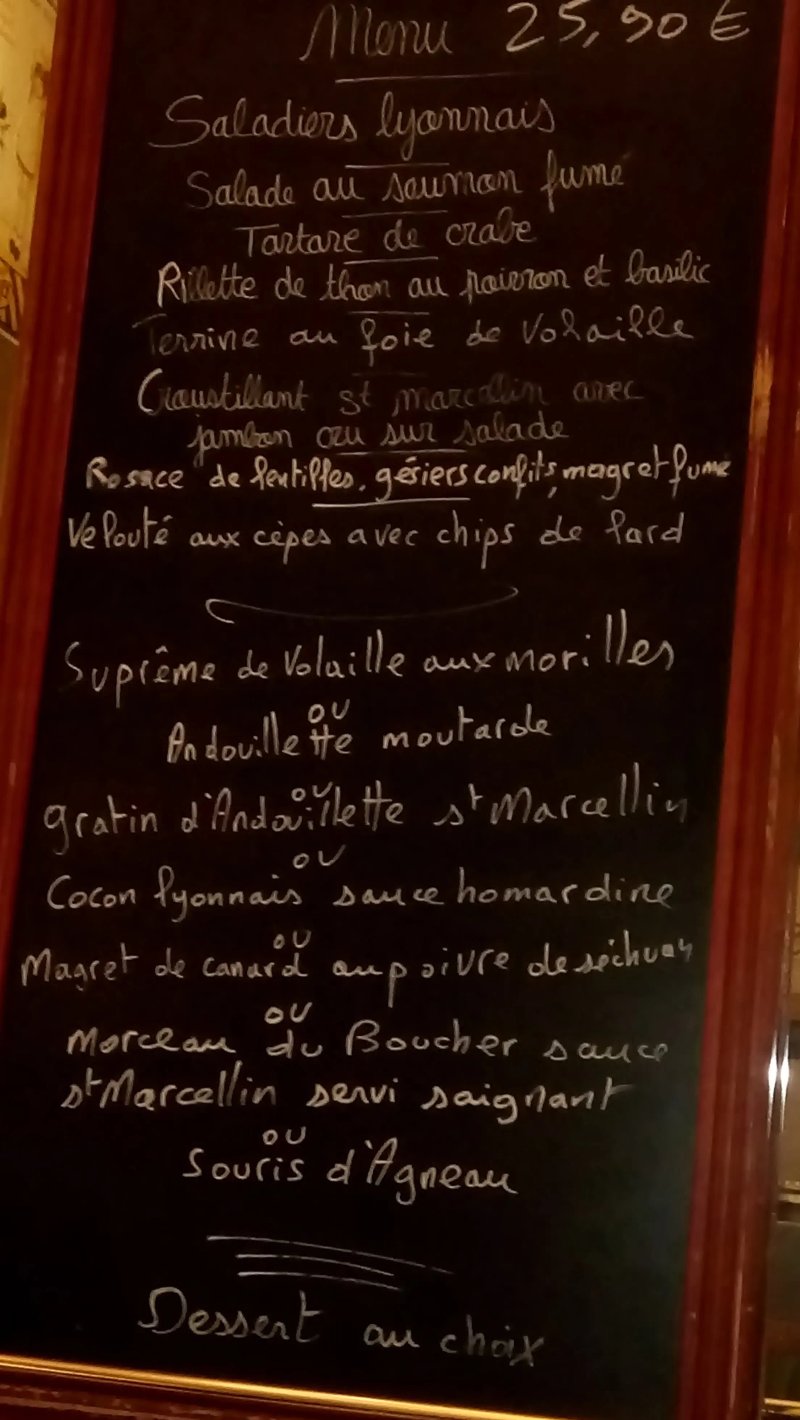 Menu 25,90 €
Saladiers lyonnais
Salade au saumon fumé
Tartare de crabe
Rillette de thon au poivron et basilic
Terrine au foie de Volaille
Croustillant st marcellin avec
jambon cru sur salade
Rosace de lentilles, gésiers confits, magret fumé
Velouté aux cèpes avec chips de lard
Suprême de Volaille aux morilles
ou
Andouillette moutarde
ou
gratin d'Andouillette st Marcellin
ou
Cocon lyonnais sauce homardine
ou
Magret de canard au poivre de séchuan
ou
Morceau du Boucher sauce
st Marcellin servi saignant
ou
Souris d'Agneau
Dessert au choix